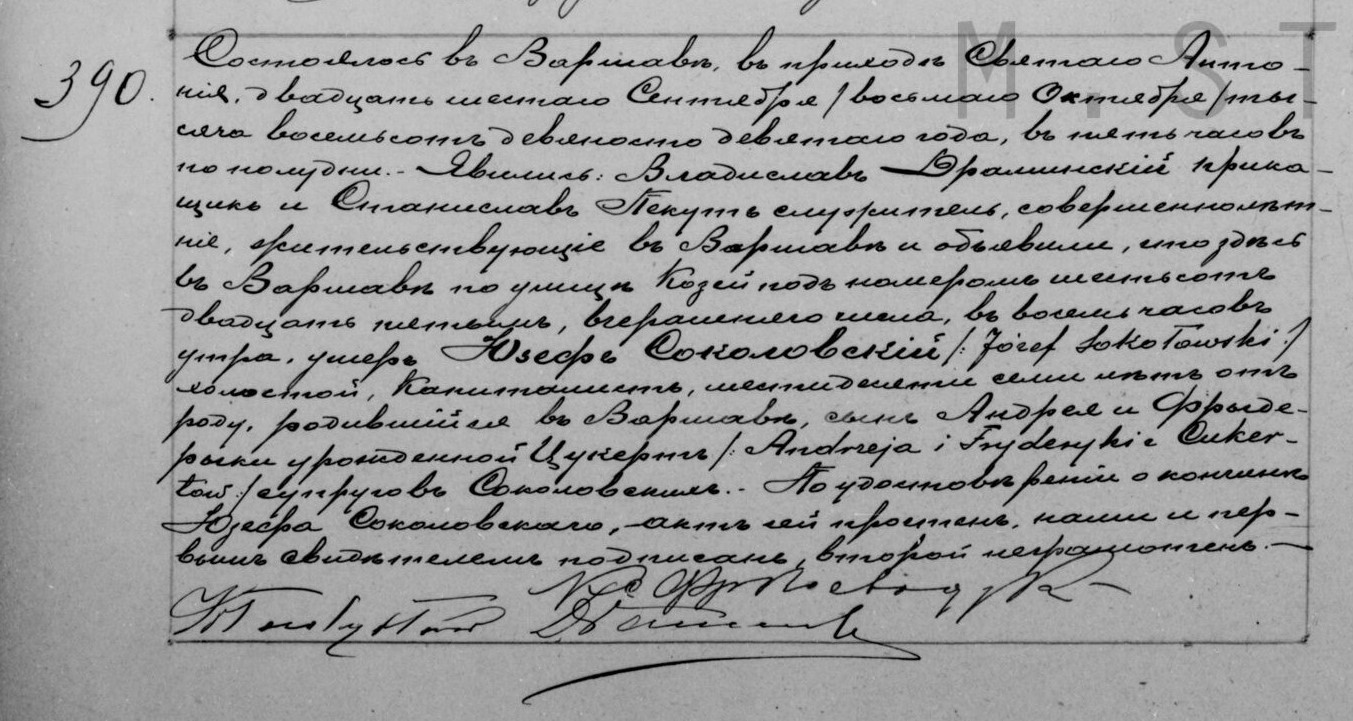 M. S T
390.
Состоялось въ Варшавѣ, въ приходѣ Святаго Анто-
нія, двадцать шестаго Сентября /восьмаго Октября/ ты-
сяча восемьсотъ девяносто девятаго года, въ пять часовъ
по полудни. - Явились: Владиславъ Драминскій прика-
щикъ и Станиславъ Пекутъ служитель, совершеннолѣт-
ніе, жительствующіе въ Варшавѣ и объявили, что здѣсь
въ Варшавѣ по улицѣ Козей подъ номеромъ шестьсотъ
двадцать пятымъ, вчерашняго числа, въ восемь часовъ
утра, умеръ Юзефъ Соколовскій /: Józef Sokołowski :/
холостой, Капиталистъ, шестидесяти семи лѣтъ отъ
роду, родившійся въ Варшавѣ, сынъ Андрея и Фрыде-
рыки урожденной Цукертъ /: Andrzeja i Fryderyki z Cuker-
tów :/ супруговъ Соколовскихъ. - По удостовѣреніи о кончинѣ
Юзефа Соколовскаго, актъ сей прочтенъ, нами и пер-
вымъ свидѣтелемъ подписанъ, второй неграмотенъ. -